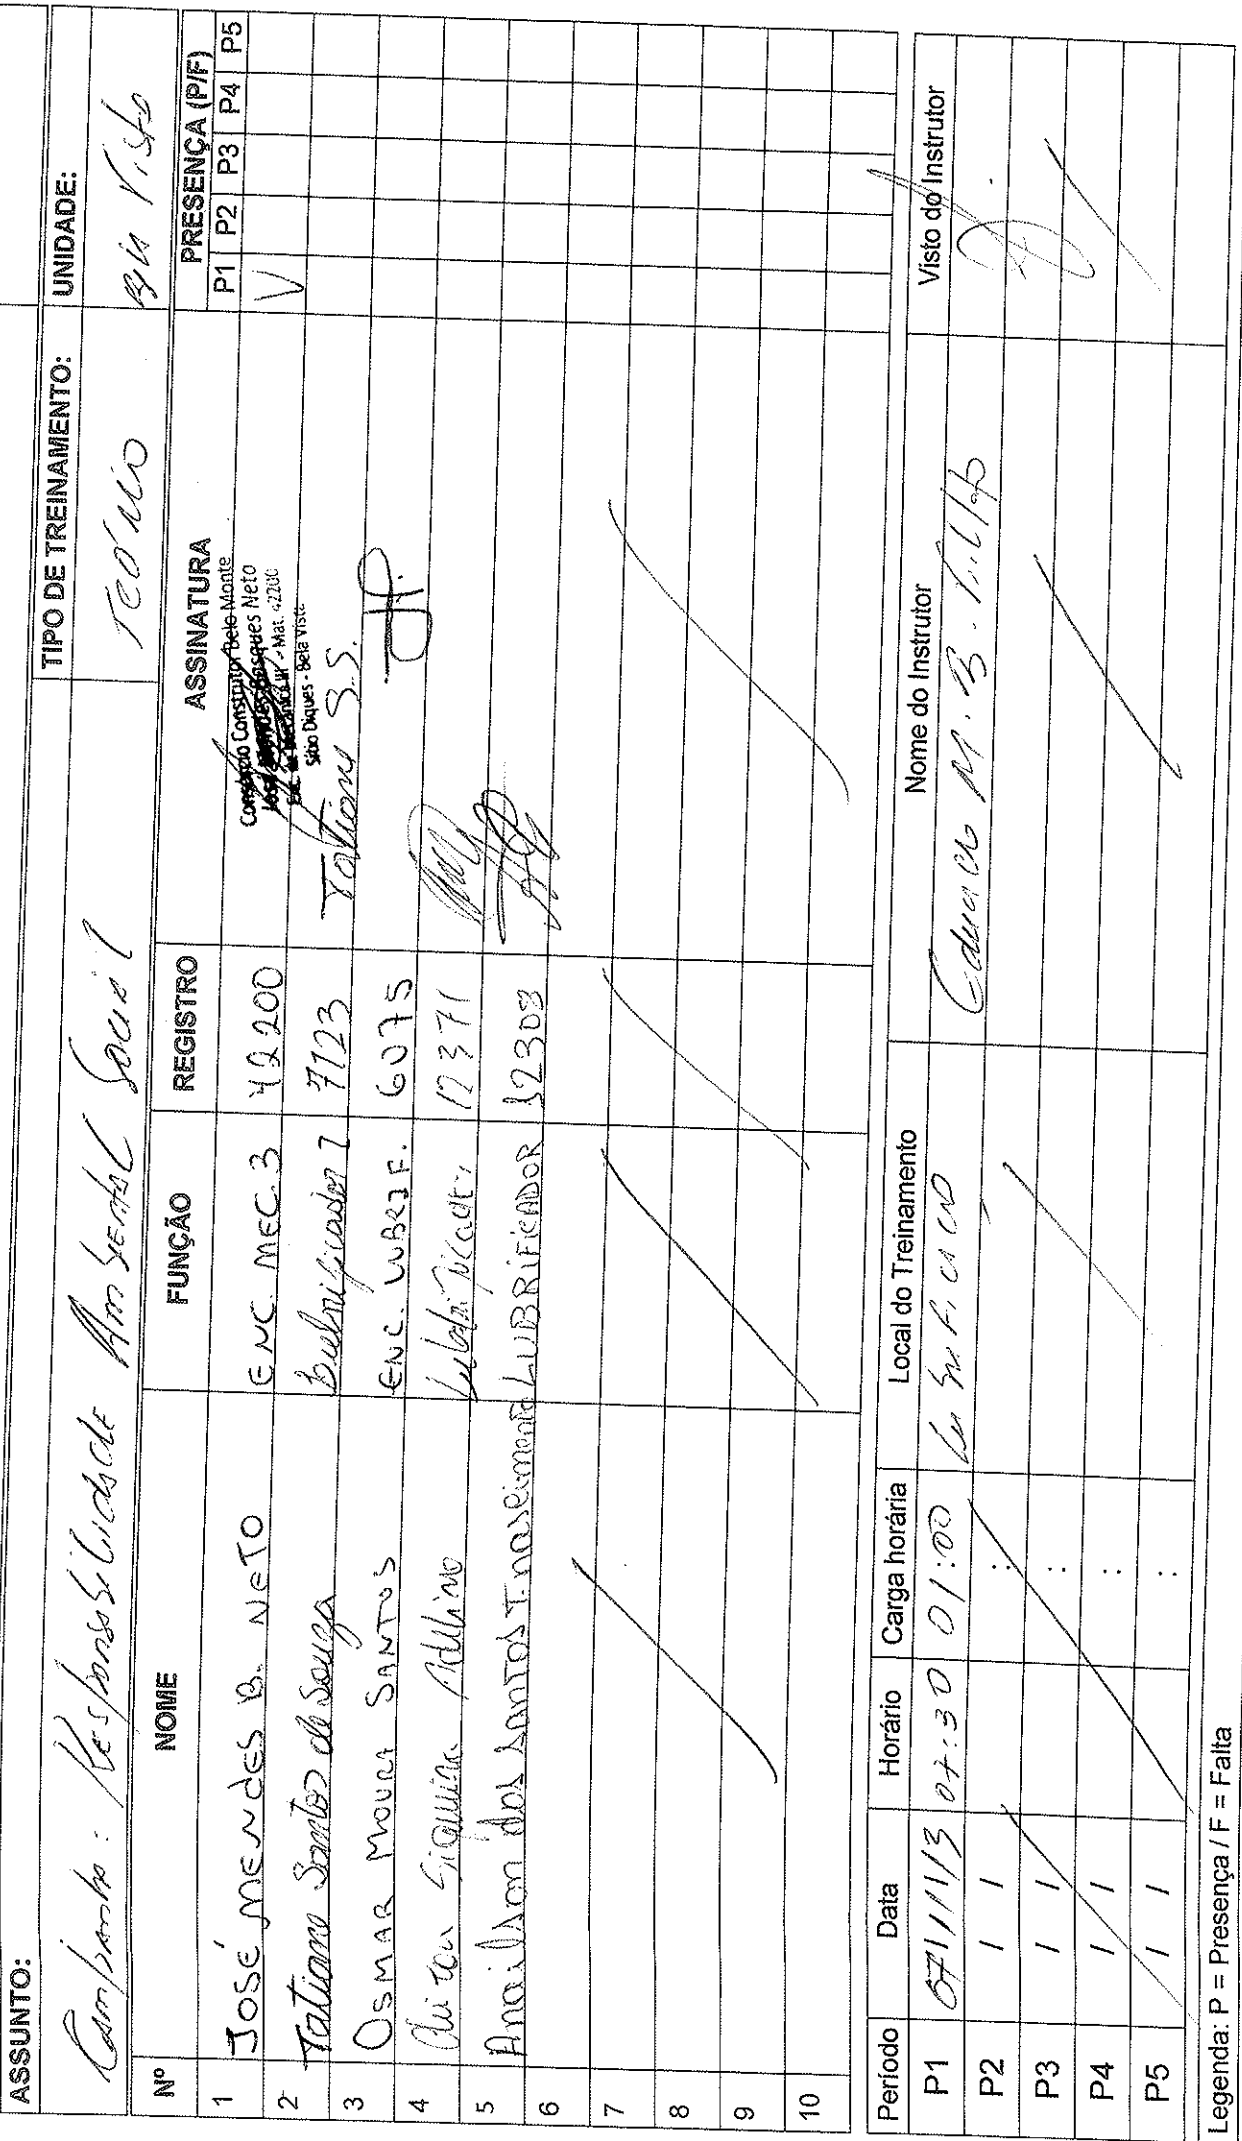 ASSUNTO:
Campanha: Responsabilidade Ambiental Social
TIPO DE TREINAMENTO:
Teórico
UNIDADE:
Bela Vista
Nº NOME FUNÇÃO REGISTRO ASSINATURA PRESENÇA (P/F)
P1 P2 P3 P4 P5
1 JOSÉ MENDES B. NETO ENC. MEC. 3 42200 V
Consórcio Construtor Belo Monte
José Mendes Bosques Neto
Enc. de Mecânica III - Mat. 42200
Sítio Diques - Bela Vista
2 Tatiane Santos de Souza 7123 Tatiane S.S.
3 OSMAR MOURA SANTOS ENC. LUBRIF. 6075
4 12371
5 Anailson dos SANTOS T. nascimento LUBRIFICADOR 12308
6
7
8
9
10
Período Data Horário Carga horária Local do Treinamento Nome do Instrutor Visto do Instrutor
P1 07/11/13 07:30 01:00 Eduardo M. B.
P2 / / :
P3 / / :
P4 / / :
P5 / / :
Legenda: P = Presença / F = Falta